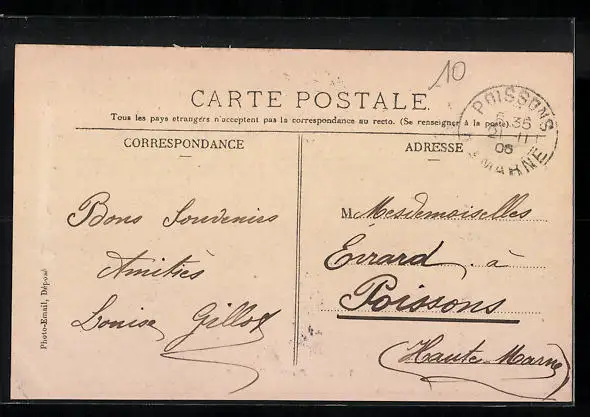 10
CARTE POSTALE.
Tous les pays étrangers n'acceptent pas la correspondance au recto. (Se renseigner à la poste).
POISSONS
35
21 - 11
06
MARNE
CORRESPONDANCE
ADRESSE
Bons Souvenirs
Amitiés
Louise Gillot
M Mesdemoiselles
Evrard à
Poissons
(Haute-Marne)
Photo-Email, Déposé